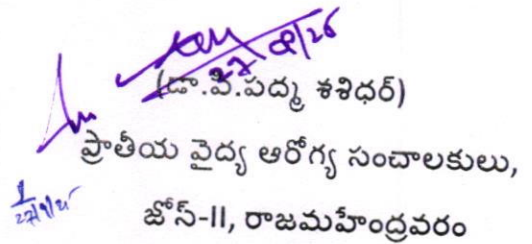 (డా.పి.పద్మ శశిధర్)
ప్రాతీయ వైద్య ఆరోగ్య సంచాలకులు,
జోన్-II, రాజమహేంద్రవరం